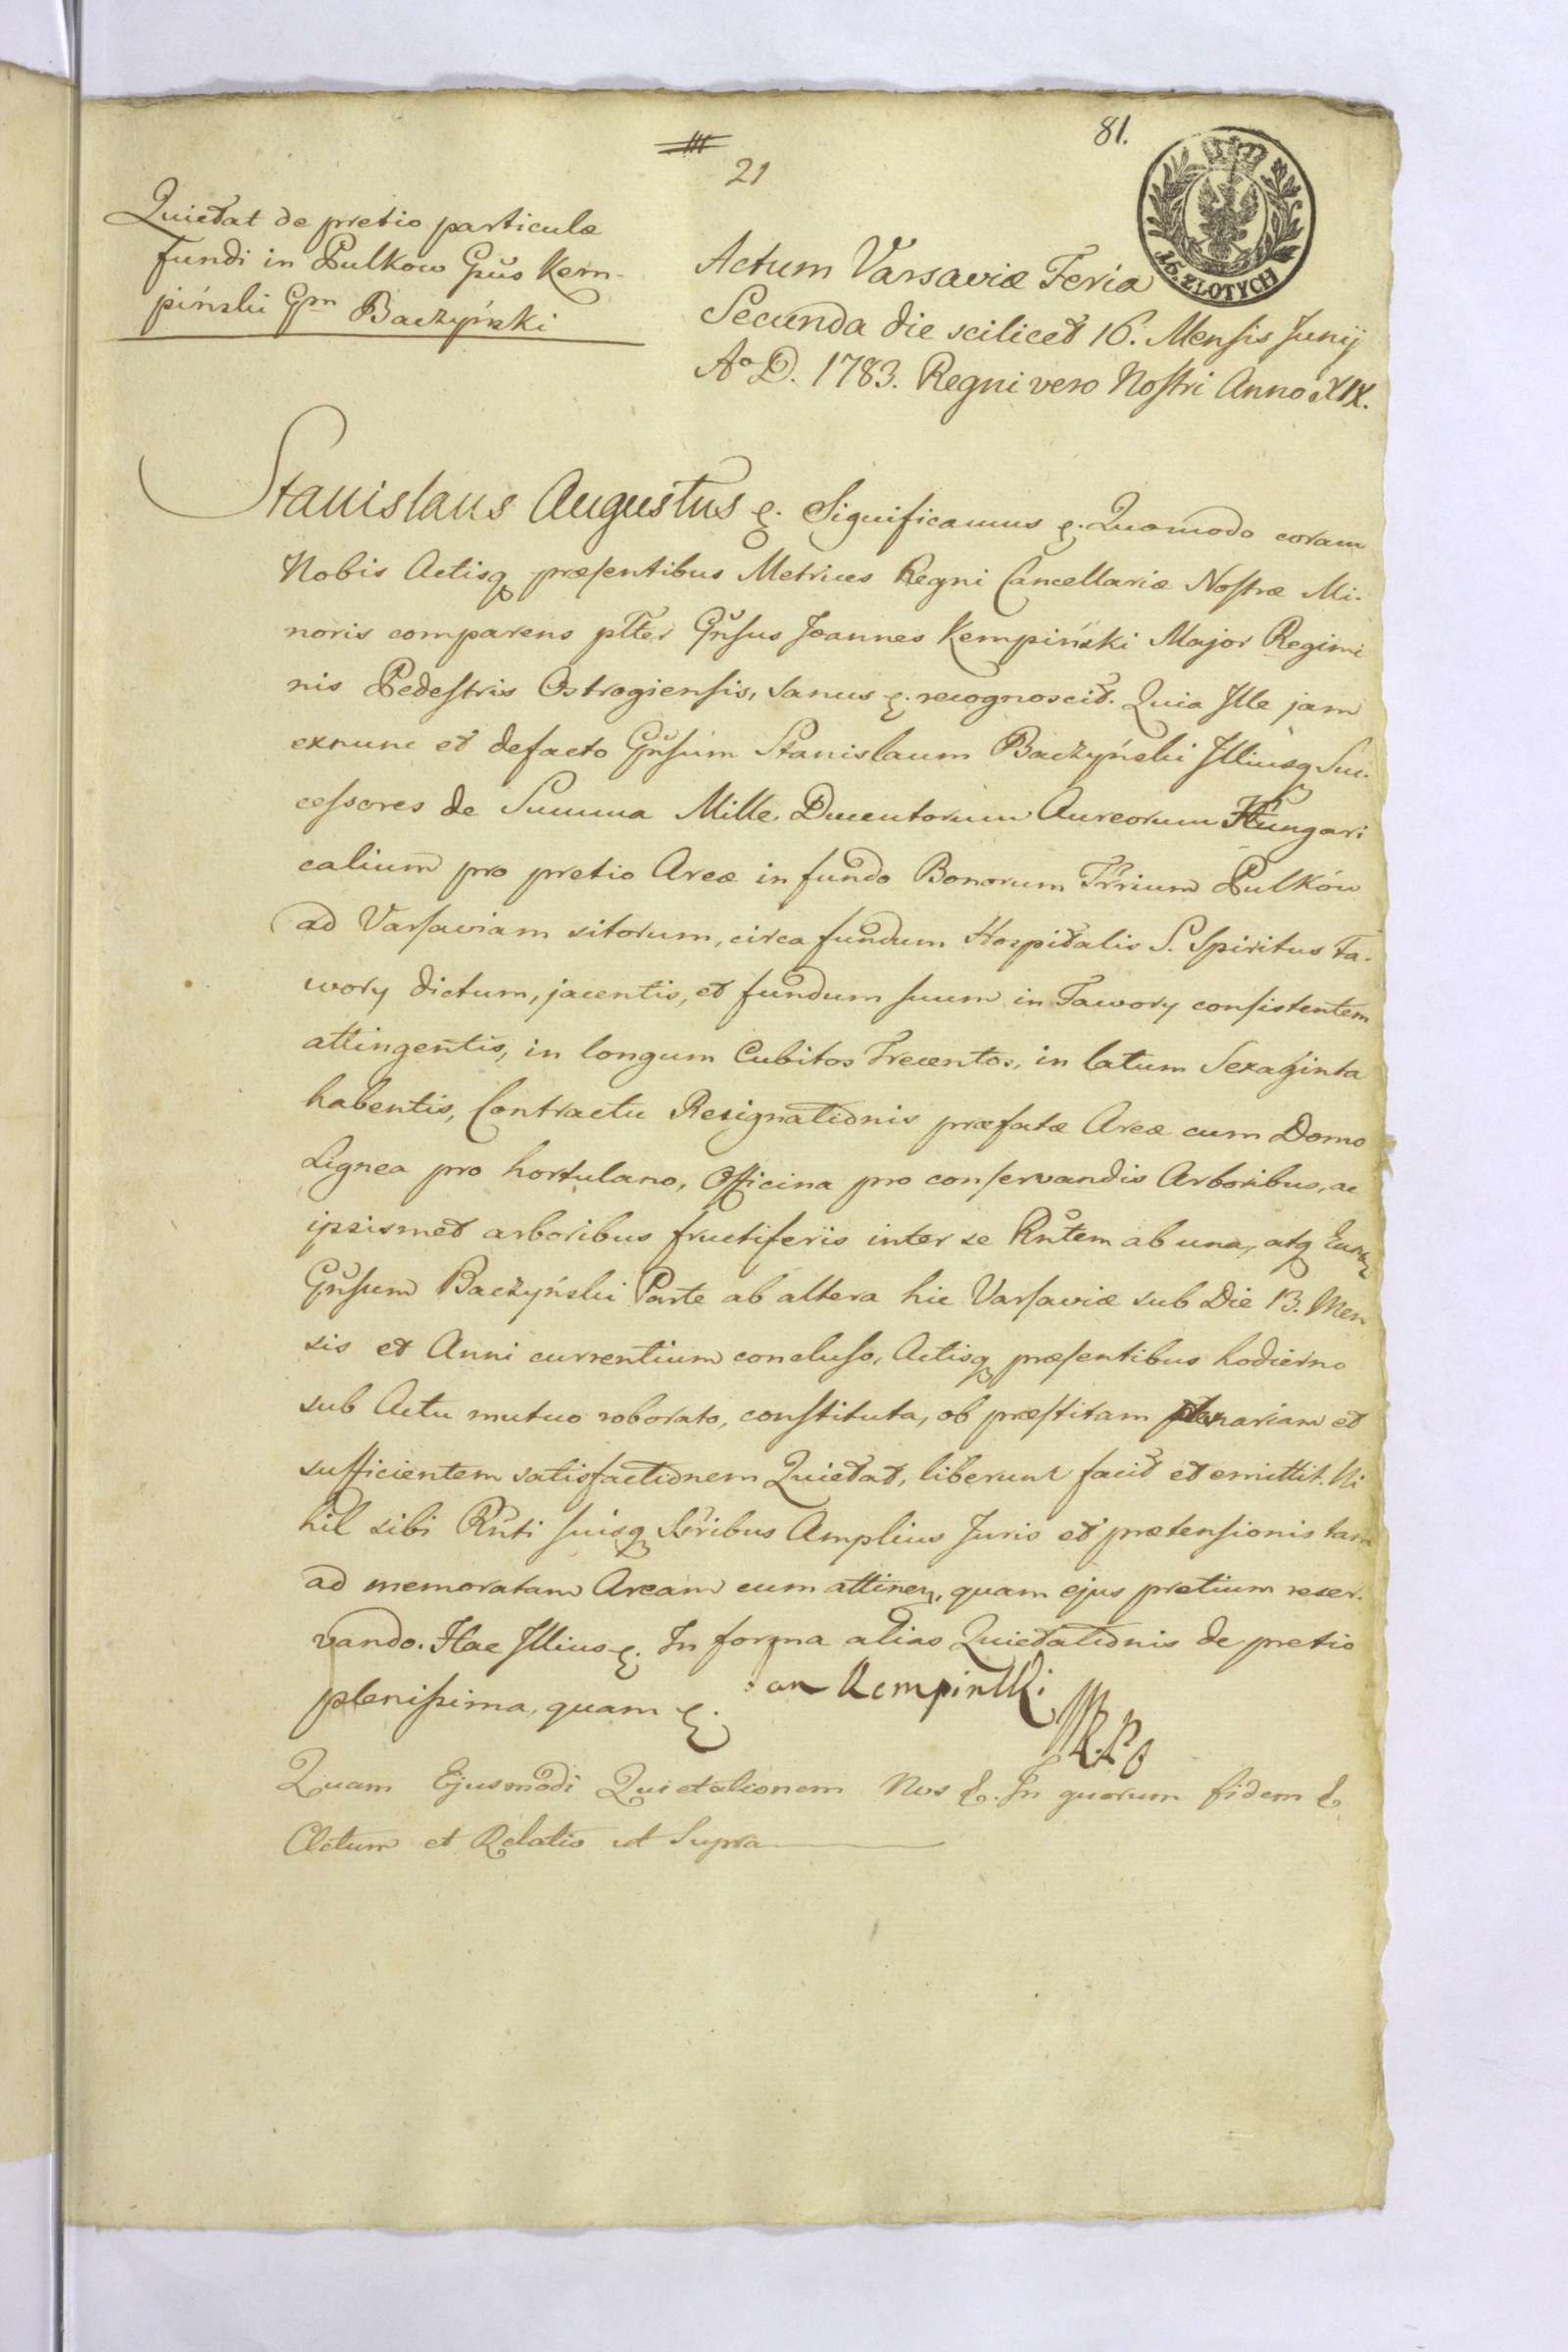 81.
21
15. ZŁOTYCH
Quietat de pretio particulæ
fundi in Pulkow Gñus Kem-
piński Gm Baczyński
Actum Varsaviæ Feria
Secunda die scilicet 16. Mensis Junij
Aº D. 1783. Regni vero Nostri Anno XIX.
Stanislaus Augustus &. Significamus &. Quomodo coram
Nobis Actisq præsentibus Metrices Regni Cancellariæ Nostræ Mi-
noris comparens plter Gnsus Joannes Kempiński Major Regimi
nis Pedestris Ostrogiensis, sanus &. recognoscit. Quia Ille jam
exnunc et defacto Gnsum Stanislaum Baczyński Illiusq Suc-
cessores de Summa Mille Ducentorum Aureorum Hungari
calium pro pretio Areæ in fundo Bonorum Trrium Pulków
ad Varsaviam sitorum, circa fundum Hospitalis S. Spiritus Ta-
wory dictum, jacentis, et fundum suum in Tawory consistentem
attingentis, in longum Cubitos Trecentos, in latum Sexaginta
habentis, Contractu Resignationis præfatæ Areæ cum Domo
Lignea pro hortulano, Officina pro conservandis Arboribus, ac
ipsismet arboribus fructiferis inter se Rntem ab una, atq Eund
Gnsum Baczyński Parte ab altera hic Varsaviæ sub Die 13. Men
sis et Anni currentium concluso, Actisq præsentibus hodierno
sub Actu mutuo roborato, constituta, ob præstitam plenariam et
sufficientem satisfactionem Quietat, liberum facit et emittit. Ni
hil sibi Rnti suisq Sŕribus Amplius Juris et prætensionis tam
ad memoratam Aream cum attinen, quam ejus pretium reser-
vando. Hac Illius &. In forma alias Quietationis de pretio
plenissima, quam &.
Jan Kempinski
Quam Ejusmodi Quietationem Nos &. In quorum fidem &
Actum et Relatio ut Supra